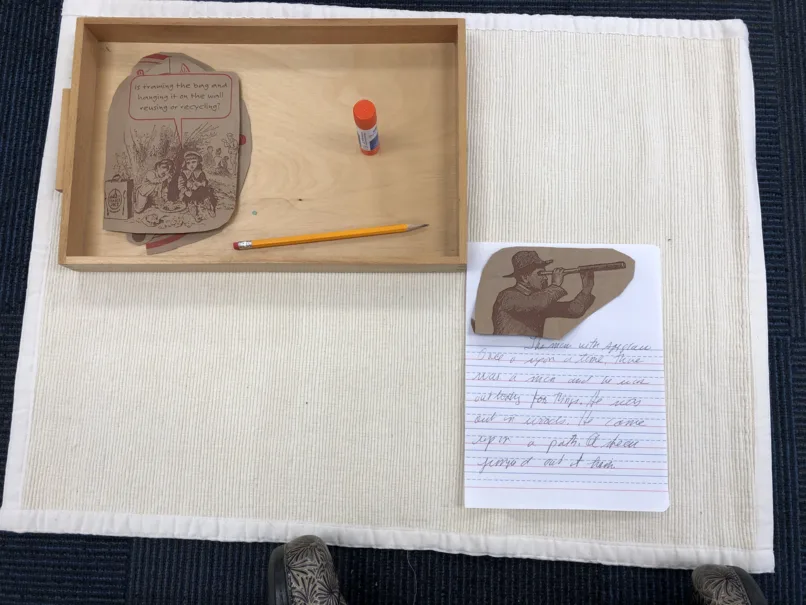 Is framing the bag and
hanging it on the wall
reusing or recycling?
The man with spyglass
Once upon a time, there
was a man and he was
out for things. He was
out in woods. He came
upon a path. A
out